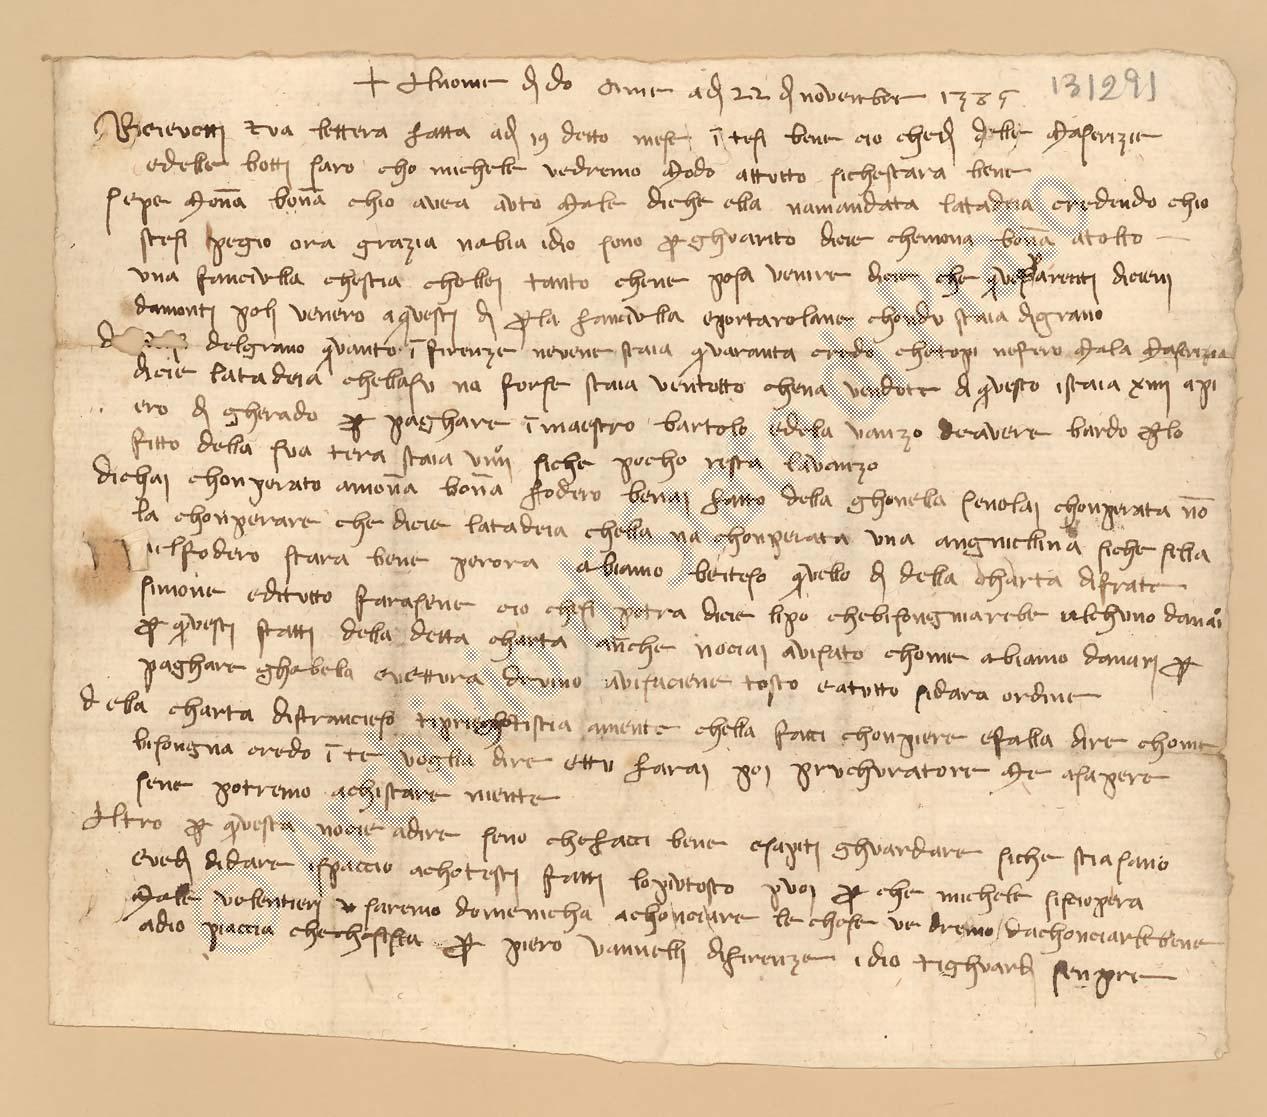 131291
+ Al nome di dio Ame adi 22 di novembre 1385
Ricievetti tua lettera fatta adi 19 detto mese ī tesi bene cio chedi delle Maserizie
edelle botti saro cho michele vedremo Modo attutto sichestara bene
Sepe Mōna bōna chio avea auto Male diche ella namandata latadeia credendo chio
stesi pegio ora grazia nabia idio sono p ghuarito dicie chemona bōna atolto
una fanciulla chestia chollei tanto chene posa venire dicie che questi parenti dicieni
damonti poli venero aquesti di p la fanciulla eportarolane chondu staia digrano
delgrano quanto ī firenze nevene staia quaranta credo chetopi nefero Mala Maserizia
dicie latadeia chellasu na forse staia ventotto chena vendote di questo istaia xiiii a pi
ero di gherado p paghare ī maestro bartolo edela vanzo deavere bardo p lo
fitto della sua tera staia viiii siche pocho resta lavanzo
dichai chonperato amōna bōna fodero benai fatto della ghonella senolai chonperata nō
la chonperare che dicie latadeia chella na chonperata una angniellina siche sella
ilfodero stara bene perora abiamo beiteso quello di della charta difrate
simone editutto farasene cio chesi potra dicie lipo chebisongniarebe alchuno danaio
p questi fatti della detta charta anche nociai avisato chome abiamo danari p
paghare ghabella evettura devino avisaciene tosto eatutto sidara ordine
della charta difrancieso tipriegho tistia amente chella facci chonpiere efalla dire chome
bisongna credo ī te voglia dire ettu farai poi pruchuratore Me asapere
sene potremo achistare niente
Altro p questa nocie adire seno chefacci bene esapiti ghuardare siche stia sano
evedi didare ispaccio achotesti fatti lo piutosto puoi p che michele sisciopera
Male volentieri saremo domenicha achonciare le chose vedremo dachonciarle bene
adio piaccia chechosisia p piero vannelli difirenze idio tighuardi senpre